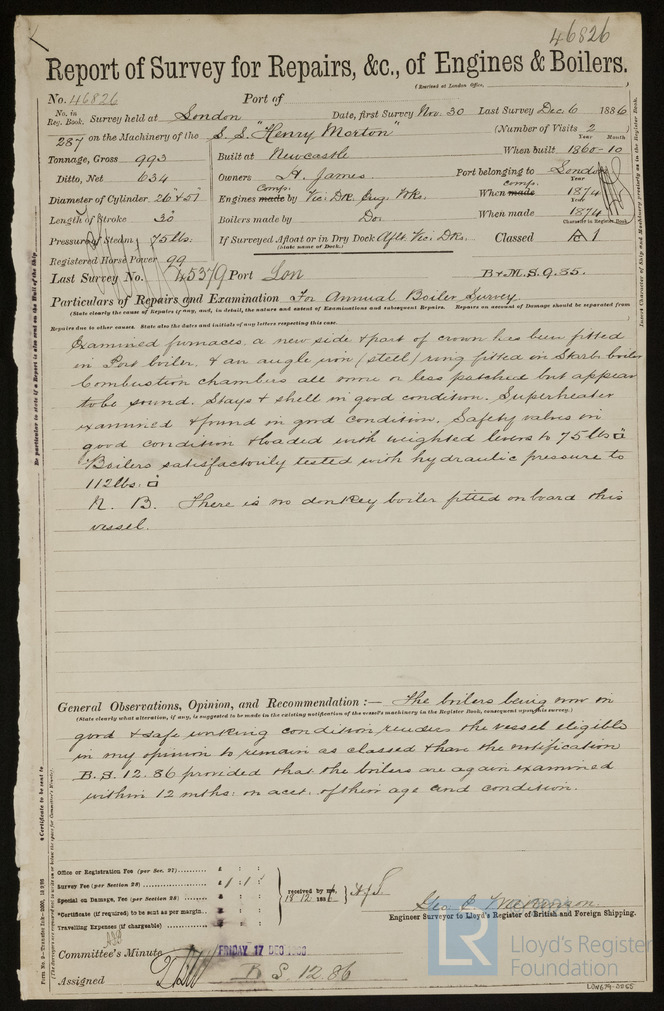 46826
Report of Survey for Repairs, &c., of Engines & Boilers.
(Received at London Office,
No. 46826 Port of
No. in Reg. Book. Survey held at London Date, first Survey Nov. 30 Last Survey Dec. 6 1886
287 on the Machinery of the S.S. "Henry Morton" (Number of Visits 2
Tonnage, Gross 993 Built at Newcastle When built 1860-10
Year Month
Ditto, Net 634 Owners H. James Port belonging to London
Diameter of Cylinder 26" & 57" Engines made Comp. by Vic. Dk. Eng. Wks. When made comp. 1874
Year
Length of Stroke 30" Boilers made by Do. When made 1874
Year
Pressure of Steam 75 lbs. If Surveyed Afloat or in Dry Dock Aflt. Vic. Dks. Classed A 1
Character in Register Book
(State name of Dock.)
Registered Horse Power 99
Last Survey No. 45379 Port Lon B&M.S. 9.85.
Particulars of Repairs and Examination For Annual Boiler Survey.
(State clearly the cause of Repairs if any, and, in detail, the nature and extent of Examinations and subsequent Repairs. Repairs on account of Damage should be separated from
Repairs due to other causes. State also the dates and initials of any letters respecting this case.
Examined furnaces. a new side & part of crown has been fitted
in Port boiler, & an angle iron (steel) ring fitted in Starb. boiler
Combustion chambers all more or less patched but appear
to be sound. Stays & shell in good condition. Superheater
examined & found in good condition. Safety valves in
good condition & loaded with weighted levers to 75 lbs □
Boilers satisfactorily tested with hydraulic pressure to
112 lbs. □
N. B. There is no donkey boiler fitted on board this
vessel.
General Observations, Opinion, and Recommendation :— The boilers being now in
(State clearly what alteration, if any, is suggested to be made in the existing notification of the vessel's machinery in the Register Book, consequent upon this survey.)
good & safe working condition renders the vessel eligible
in my opinion to remain as classed & have the notification
B.S. 12.86 provided that the boilers are again examined
within 12 mths: on acct. of their age and condition.
Office or Registration Fee (per Sec. 27)
Survey Fee (per Section 28) £ 1 : 1 :
Special on Damage, Fee (per Section 28) £ : :
*Certificate (if required) to be sent as per margin
Travelling Expenses (if chargeable) £ : :
received by me,
18.12.1886
Engineer Surveyor to Lloyd's Register of British and Foreign Shipping.
Committee's Minute FRIDAY 17 DEC 1886
Assigned B. S. 12.86
LR
Lloyd's Register
Foundation
LON679-0055
Be particular to state if a Report is also sent on the Hull of the Ship.
Insert Character of Ship and Machinery precisely as in the Register Book.